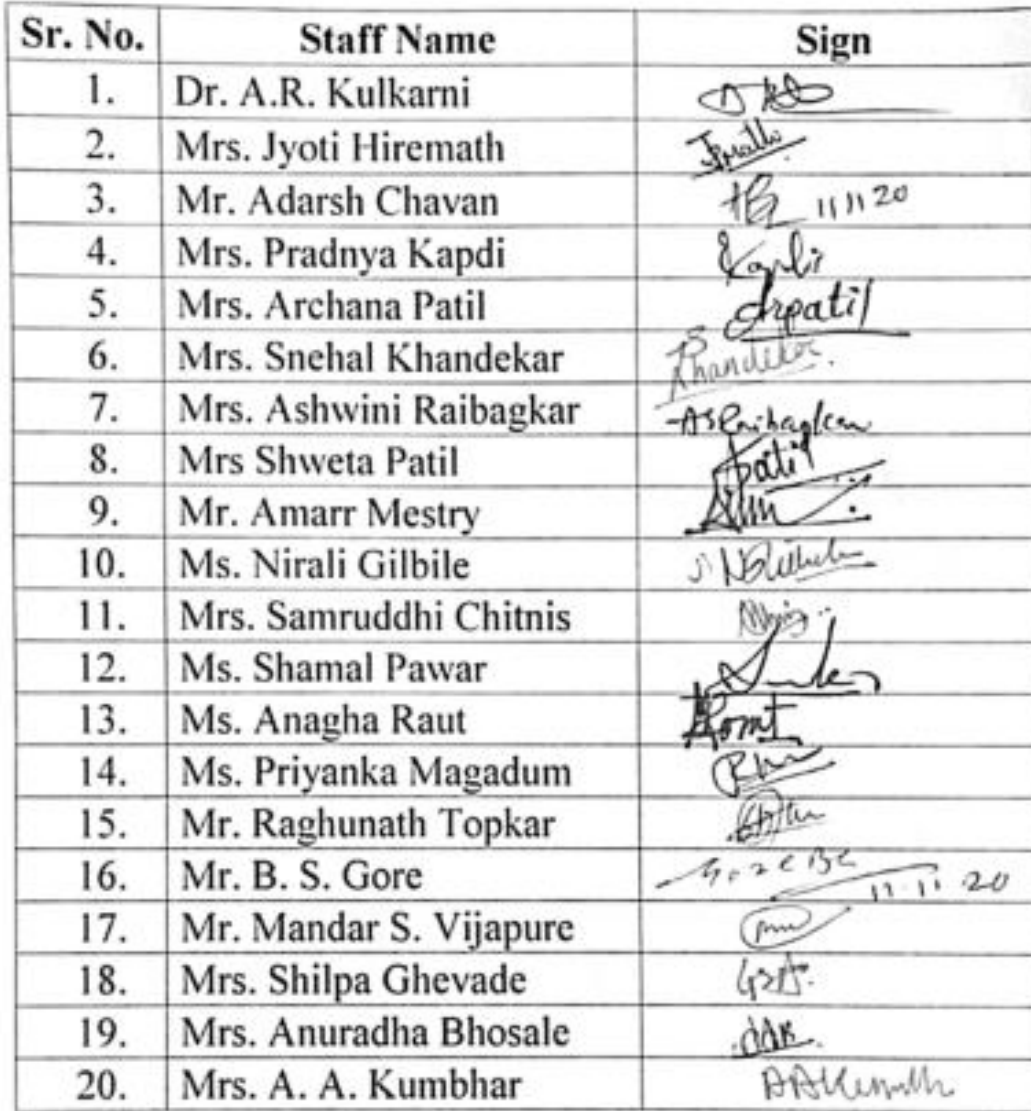 Sr. No. Staff Name Sign
1. Dr. A.R. Kulkarni
2. Mrs. Jyoti Hiremath
3. Mr. Adarsh Chavan 11 11 20
4. Mrs. Pradnya Kapdi
5. Mrs. Archana Patil Arpatil
6. Mrs. Snehal Khandekar Khandekar.
7. Mrs. Ashwini Raibagkar ASRaibagkar
8. Mrs Shweta Patil Patil
9. Mr. Amarr Mestry
10. Ms. Nirali Gilbile
11. Mrs. Samruddhi Chitnis
12. Ms. Shamal Pawar
13. Ms. Anagha Raut
14. Ms. Priyanka Magadum
15. Mr. Raghunath Topkar
16. Mr. B. S. Gore 11.11.20
17. Mr. Mandar S. Vijapure
18. Mrs. Shilpa Ghevade
19. Mrs. Anuradha Bhosale
20. Mrs. A. A. Kumbhar